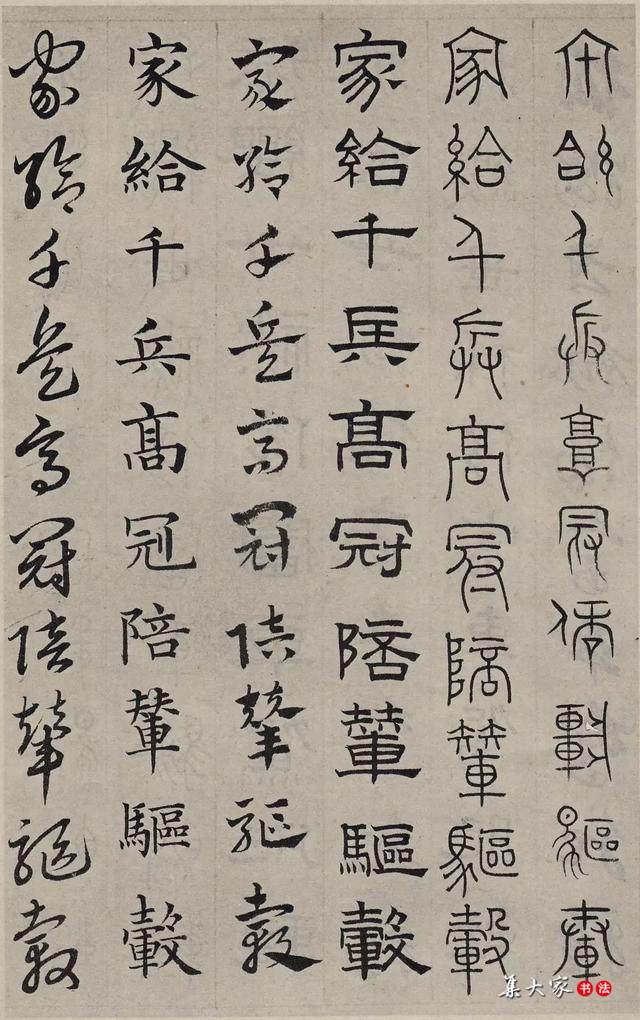 家給千兵高冠陪輦驅轂
家給千兵高冠陪輦驅轂
家給千兵高冠陪輦驅轂
家給千兵高冠陪輦驅轂
家給千兵高冠陪輦驅轂
家給千兵高冠陪輦驅轂
集大家书法